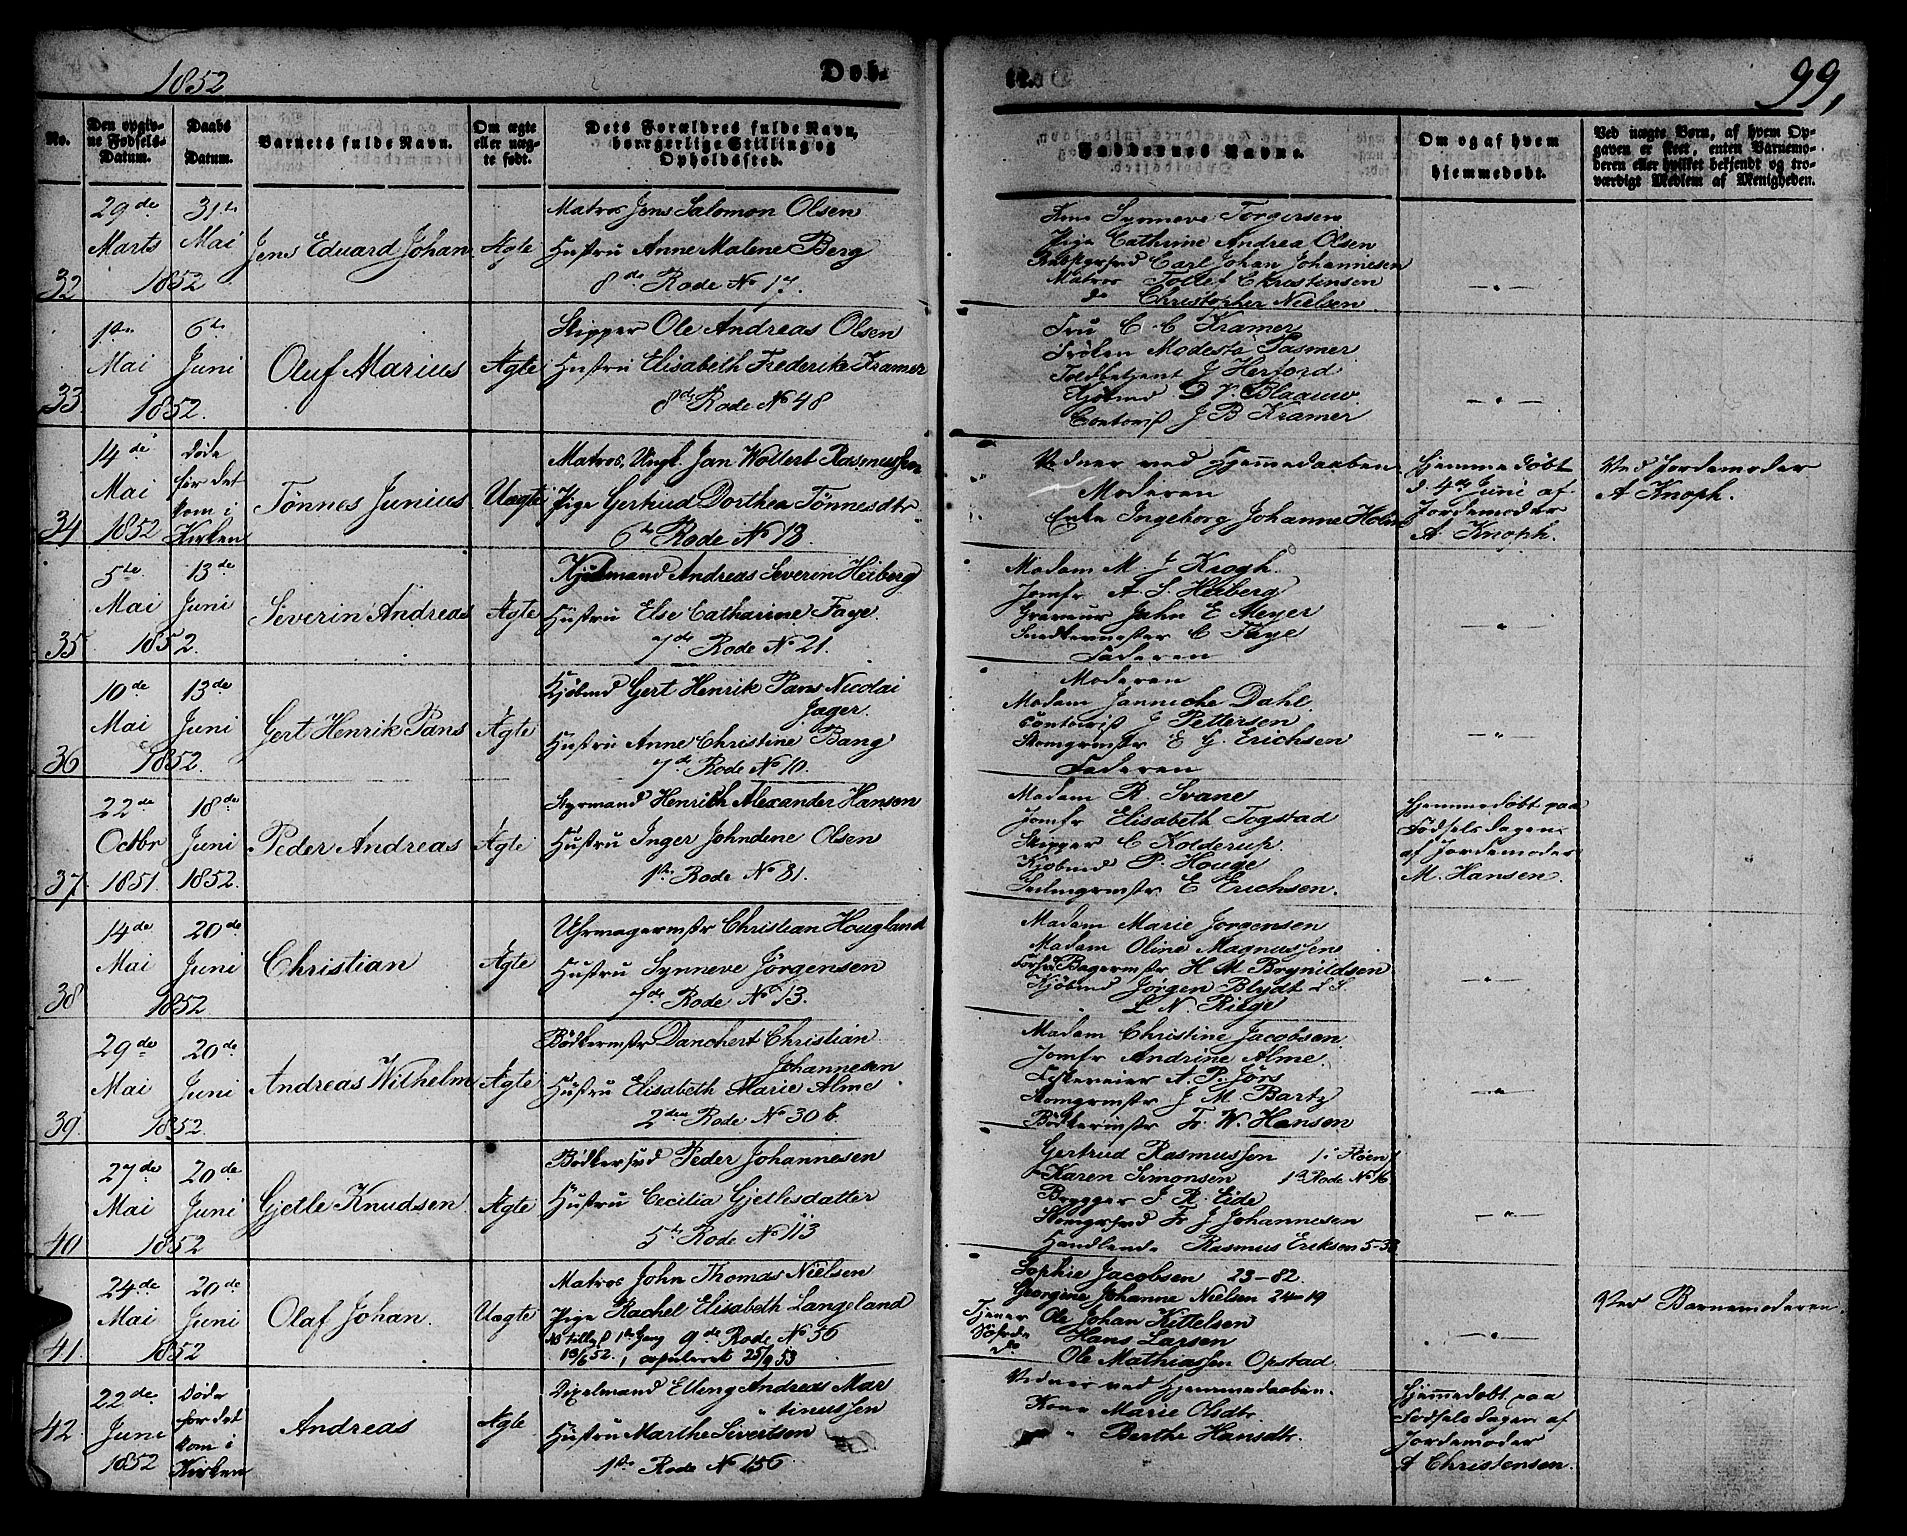 1852
Døb.
99,
No.
Den opgiv-
ne Fødsels-
Datum.
Daabs
Datum.
Barnets fulde Navn.
Om ægte
eller uæg-
te født.
Dets Forældres fulde Navn,
borgerlige Stilling og
Opholdssted.
Faddernes Navne.
Om og af hvem
hjemmedøbt.
Ved uægte Børn, af hvem Op-
gaven er skeet, enten Barnemo-
deren eller hvilket bekjendt og tro-
værdigt Medlem af Menigheden.
32
29de
Marts
31te
Mai
1852
Jens Eduard Johan
Ægte
Matros Jens Salomon Olsen
Hustru Anne Malene Berg
8de Rode No 17.
Kone Synneve Torgersen
Pige Cathrine Andrea Olsen
Carl Johan Johannesen
Matros Tollef Christensen
do Christopher Nielsen
- " -
33
1ste
Mai
6te
Juni
1852.
Oluf Marius
Ægte
Skipper Ole Andreas Olsen
Hustru Elisabeth Frederike Kramer
8de Rode No 48
Fru C. C. Kramer
Frøken Modesta Pasmer
Toldbetjent J Herford
Kjøbmd D V. Blaauw
Contorist J B Kramer
- " -
34
14de
Mai
1852
Døde
før det
kom i
Kirken
Tønnes Junius
Uægte
Matros, Ungk. Jan Wollert Rasmussen
Pige Gertrud Dorthea Tønnesdtr
6te Rode No 13
Vidner ved Hjemmedaaben
Moderen
Enke Ingeborg Johanne Holm
Hjemmedøbt
d. 4de Juni af
Jordemoder
A. Knoph.
Ved Jordemoder
A Knoph.
35
5te
Mai
13de
Juni
1852.
Severin Andreas
Ægte
Kjøbmand Andreas Severin Heiberg
Hustru Else Catharine Faye.
7de Rode No 21.
Madam M. J Krogh.
Jomfr A. S. Heiberg
Graveur Jahn E Meyer
Snedkermester C Faye
Faderen
- " -
36
10de
Mai
13de
Juni
1852.
Gert Henrik Pans
Ægte
Kjøbmd Gert Henrik Pans Nicolai
Jager.
Hustru Anne Christine Bang
7de Rode No 10.
Moderen
Madam Janniche Dahl.
Contorist J Pettersen
Skomgrmstr E G. Erichsen
Faderen
- " -
37.
22de
Octbr
1851.
18de
Juni
1852.
Peder Andreas
Ægte
Styrmand Henrich Alexander Hansen
Hustru Inger Johndene Olsen
1ste Rode No 81.
Madam R. Svane
Jomfr Elisabeth Togstad
Skipper C Kolderup
Kjøbmd P. Houge
Seilmgrmstr E Erichsen.
Hjemmedøbt paa
Fødselsdagen
af Jordemoder
M. Hansen.
38
14de
Mai
20de
Juni
1852
Christian
Ægte
Uhrmagermstr Christian Hougland
Hustru Synneve Jörgensen
7de Rode No 13.
Madam Marie Jorgensen
Madam Oline Magnussen
Bagermstr H M Brynildsen
Kjøbmd Jørgen Blydt L. S.
L N. Riege
- " -
39.
29de
Mai
20de
Juni
1852.
Andreas Wilhelm
Ægte
Bødkermstr Danchert Christian
Johannesen
Hustru Elisabeth Marie Alme
2den Rode No 30 b.
Madam Christine Jacobsen
Jomfr Andrine Alme.
A. P. Jörs
Skomgrmstr J M. Bartz
Bødkermstr Fr. W. Hansen
- " -
40
27de
Mai
20de
Juni
1852
Gjetle Knudsen
Ægte
Bødkersvd Peder Johannesen
Hustru Cecilia Gjetlesdatter
5te Rode No 113
Gertrud Rasmussen 1 i Støen
Karen Simonsen 1ste Rode No 16
Brygger J. R. Eide
Skomgrsvd Fr J Johannesen
Handlende Rasmus Eriksen 5-38
- " -
41.
24de
Mai
20de
Juni
1852
Olaf Johan.
Uægte
Matros John Thomas Nielsen
Pige Rachel Elisabeth Langeland
1ste Gang 9de Rode No 56
13/6 52., copuleret 25/9 53
Sophie Jacobsen 23-82.
Georgine Johanne Nielsen 24-19
Tjener Ole Johan Kittelsen
Hans Larsen
do Ole Mathiassen Opstad
- " -
Ved Barnemoderen.
42.
22de
Juni
1852
Døde
før det
kom i
Kirken
Andreas
Ægte
Elling Andreas Mar
tinussen
Hustru Marthe Sivertsen
1ste Rode No 156
Vidner ved Hjemmedaaben.
Kone Marie Olsdtr.
" Berthe Hansdtr.
Hjemmedøbt paa
Fødselsdagen af
Jordemoder
A Christensen.